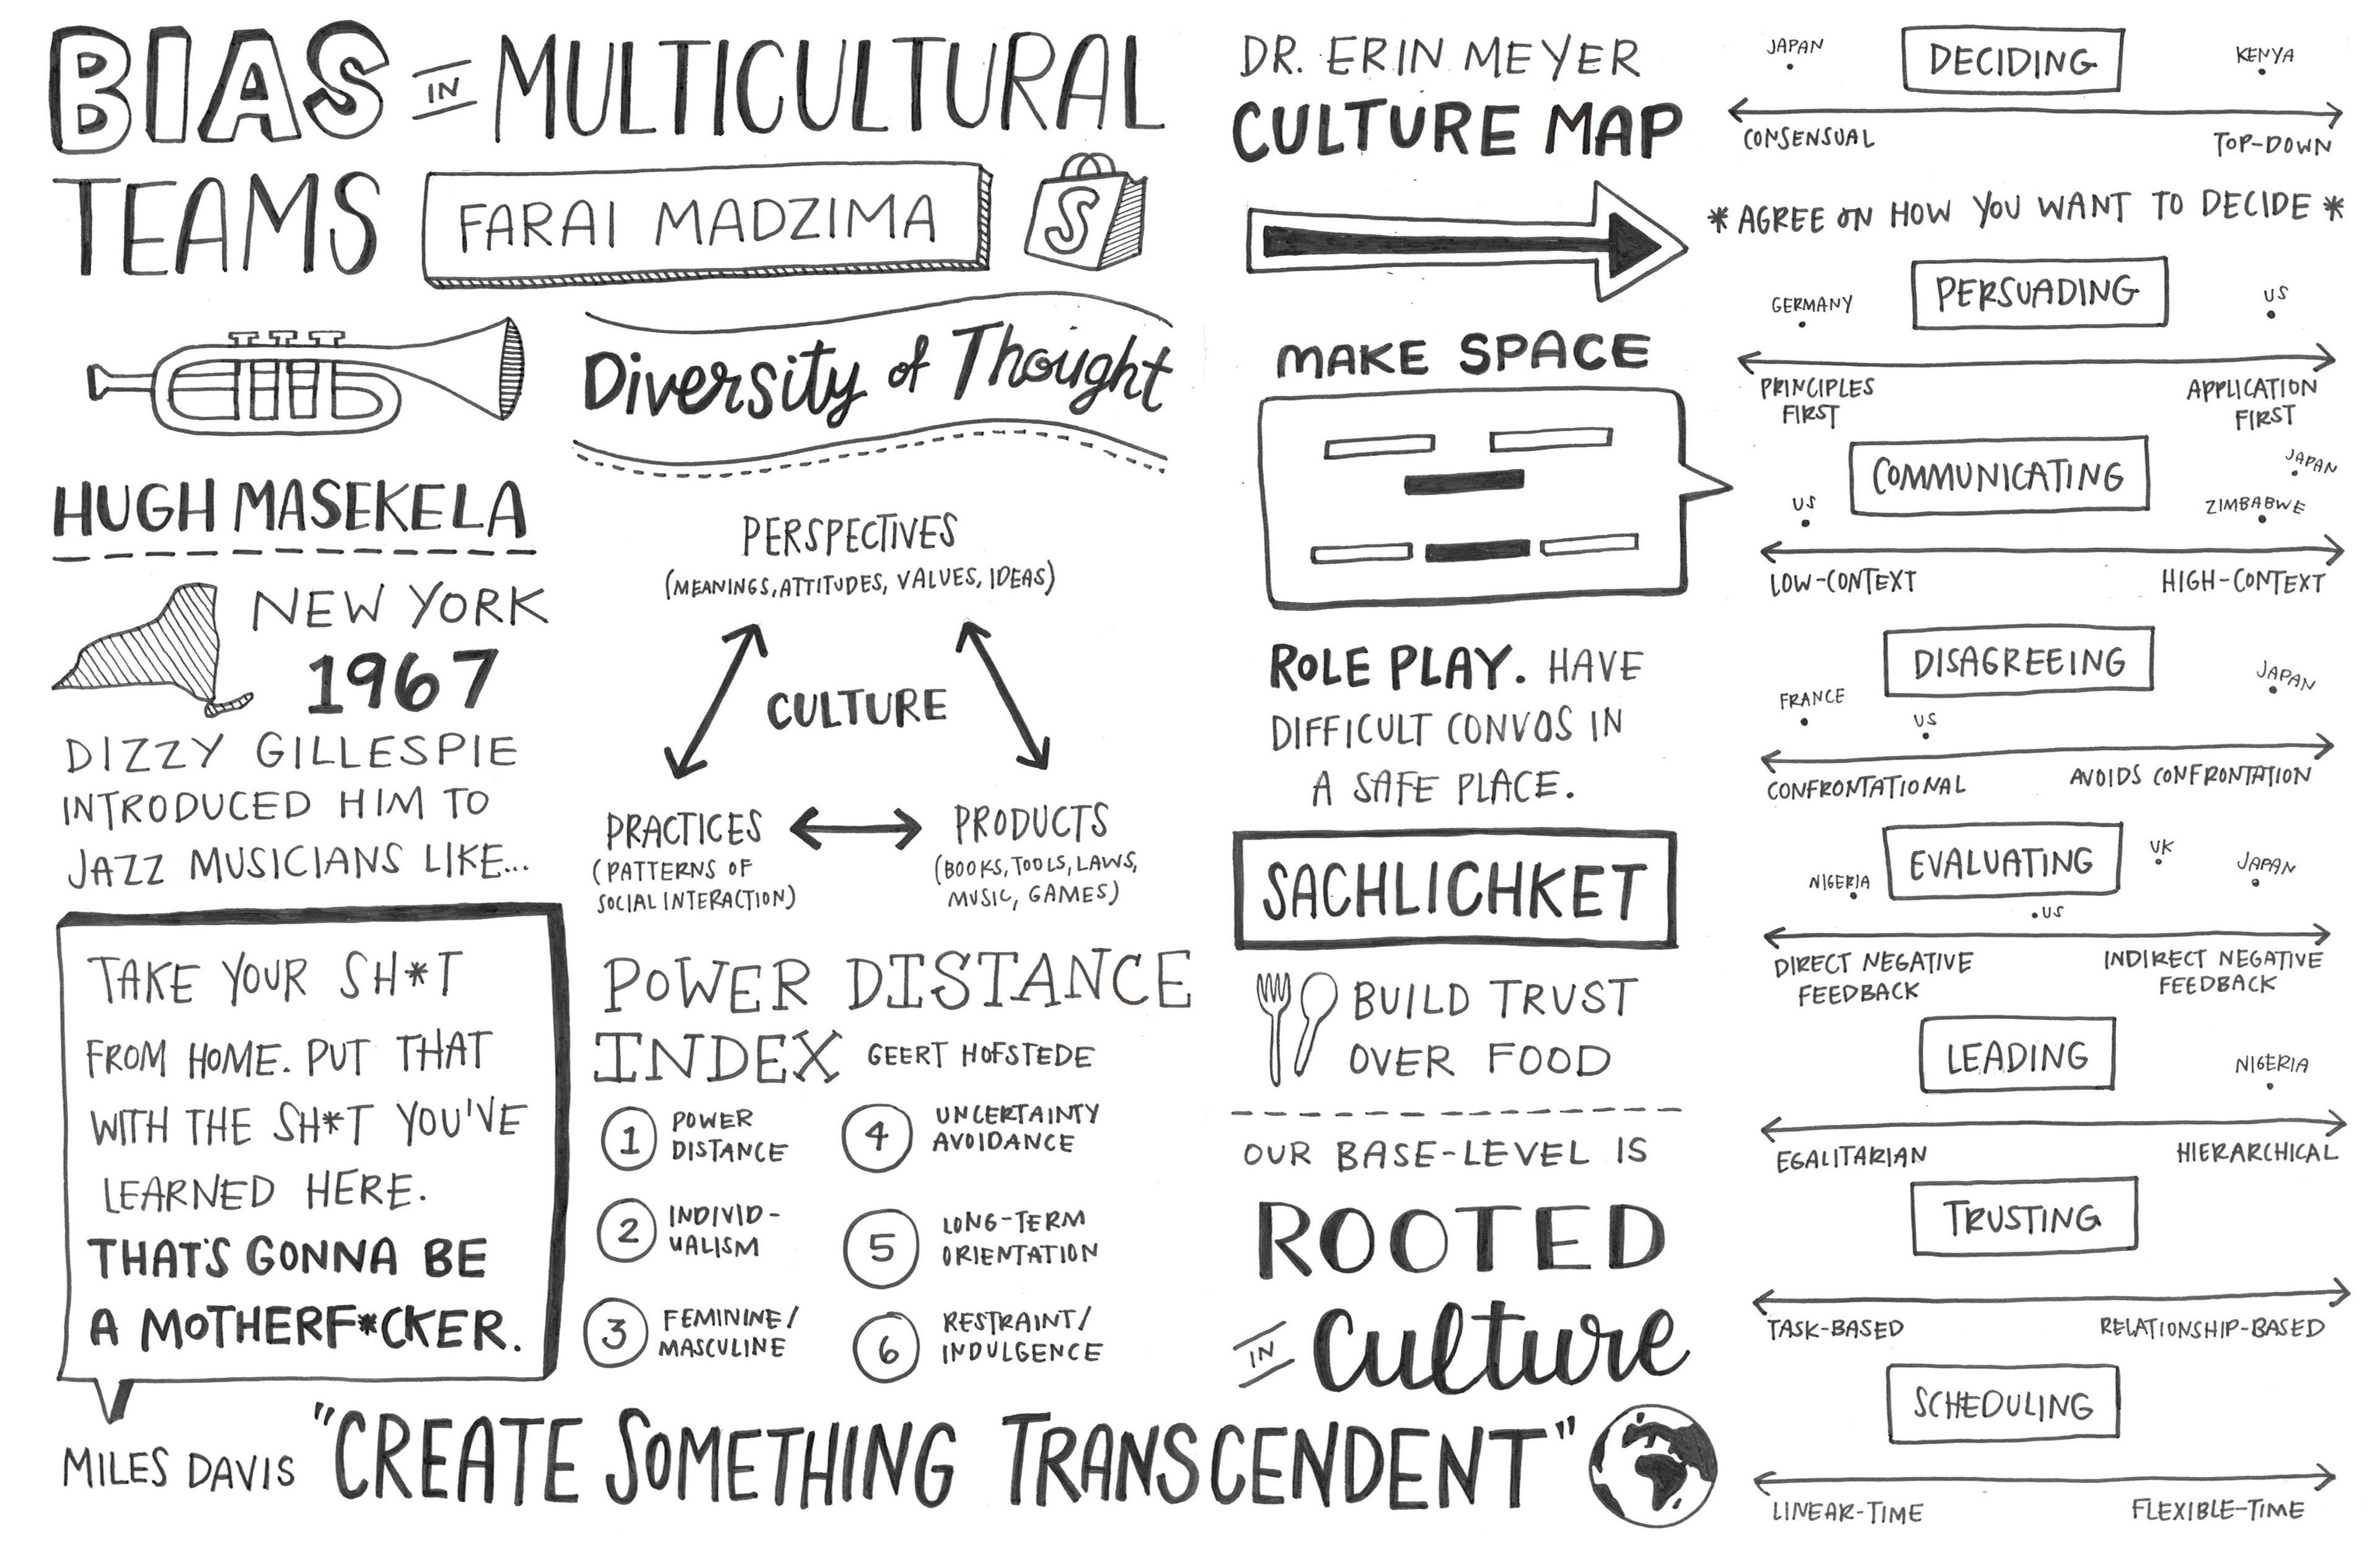 BIAS IN MULTICULTURAL
TEAMS
FARAI MADZIMA
S
HUGH MASEKELA
NEW YORK
1967
DIZZY GILLESPIE
INTRODUCED HIM TO
JAZZ MUSICIANS LIKE...
TAKE YOUR SH*T
FROM HOME. PUT THAT
WITH THE SH*T YOU'VE
LEARNED HERE.
THAT'S GONNA BE
A MOTHERF*CKER.
MILES DAVIS
Diversity of Thought
PERSPECTIVES
(MEANINGS, ATTITUDES, VALUES, IDEAS)
CULTURE
PRACTICES
(PATTERNS OF
SOCIAL INTERACTION)
PRODUCTS
(BOOKS, TOOLS, LAWS,
MUSIC, GAMES)
POWER DISTANCE
INDEX GEERT HOFSTEDE
1 POWER
DISTANCE
2 INDIVID-
UALISM
3 FEMININE/
MASCULINE
4 UNCERTAINTY
AVOIDANCE
5 LONG-TERM
ORIENTATION
6 RESTRAINT/
INDULGENCE
"CREATE SOMETHING TRANSCENDENT"
DR. ERIN MEYER
CULTURE MAP
MAKE SPACE
ROLE PLAY. HAVE
DIFFICULT CONVOS IN
A SAFE PLACE.
SACHLICHKET
BUILD TRUST
OVER FOOD
OUR BASE-LEVEL IS
ROOTED
IN Culture
DECIDING
JAPAN
KENYA
CONSENSUAL
TOP-DOWN
*AGREE ON HOW YOU WANT TO DECIDE*
PERSUADING
GERMANY
US
PRINCIPLES
FIRST
APPLICATION
FIRST
COMMUNICATING
US
JAPAN
ZIMBABWE
LOW-CONTEXT
HIGH-CONTEXT
DISAGREEING
FRANCE
US
JAPAN
CONFRONTATIONAL
AVOIDS CONFRONTATION
EVALUATING
NIGERIA
UK
JAPAN
US
DIRECT NEGATIVE
FEEDBACK
INDIRECT NEGATIVE
FEEDBACK
LEADING
NIGERIA
EGALITARIAN
HIERARCHICAL
TRUSTING
TASK-BASED
RELATIONSHIP-BASED
SCHEDULING
LINEAR-TIME
FLEXIBLE-TIME